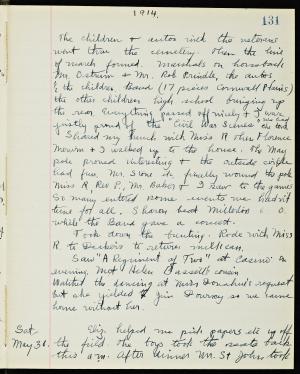 1914.
131
The children & autos with the veterans
went thru the cemetery. Then the line
of march formed. Marshals on horseback
Mr. & Mr. Rob Brindle, the autos,
& the children, Band (17 pieces Cornwall Plains)
the other children high school bringing up
the rear. Everything passed off nicely & I was
justly proud of the "Civil War Scenes"
Shared my lunch with Miss R. then Florence
& I walked up to the house. The May
pole proved interesting & the outside circle
had fun. Mr. Stone Jr. finally wound the pole
Miss R, Rev P., Mr. Baker & I saw to the games
So many entered some events we hadn't
time for all. Sharon beat Millerton 6 0.
while the Band gave a concert.
Took down the bunting. Rode with Miss
R to Deakins to return
Saw "A Regiment of Two" at Casino in
evening. Met Helen Bassett's cousin
Watched the dancing at Miss Donahue's request
but she yielded to Jim so we came
home without her.
Sat.
May 31.
Eliz. helped me pick papers etc up off
the field the boys took the seats back
this a.m. After dinner Mr. St. John took